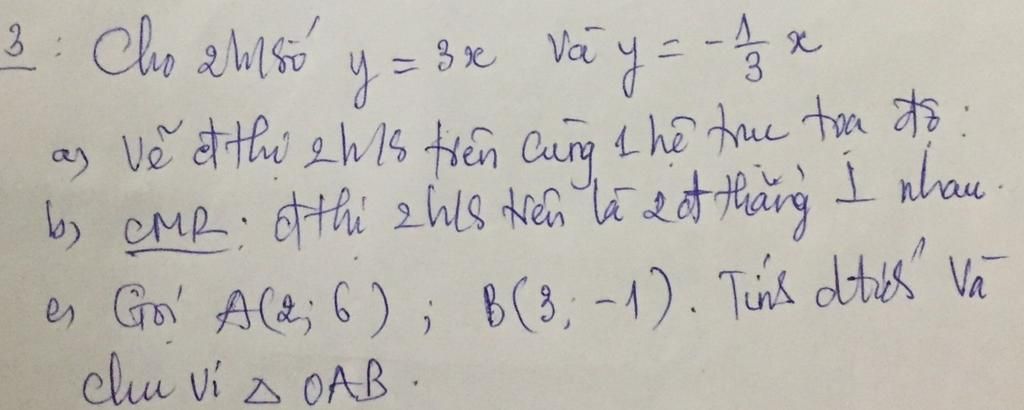 3: Cho 2 h/số y = 3x và y = -1/3 x
a) Vẽ đthị 2 h/s trên cùng 1 hệ trục toạ độ:
b) CMR: đthị 2 h/s trên là 2 đ thẳng ⊥ nhau.
c) Gọi A(2; 6) ; B(3; -1). Tính dtích và
chu vi △ OAB.